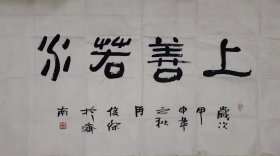 上善若水
歲次
甲
申年
之秋
月
俊儒
於濟
南